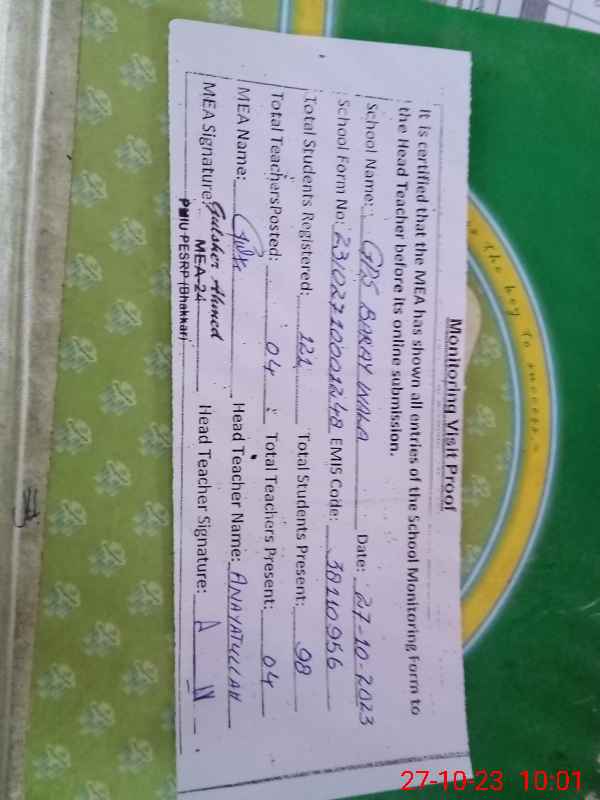 Monitoring Visit Proof
It is certified that the MEA has shown all entries of the School Monitoring Form to
the Head Teacher before its online submission.
School Name: GPS BARAY WALA Date: 27-10-2023
School Form No: 231027100001248 EMIS Code: 38110956
Total Students Registered: 121 Total Students Present: 98
Total Teachers Posted: 04 Total Teachers Present: 04
MEA Name: Head Teacher Name: ANAYATULLAH
MEA Signature: Gulsher Ahmed Head Teacher Signature:
MEA-24
PMIU-PESRP (Bhakkar)
the key to success
27-10-23 10:01